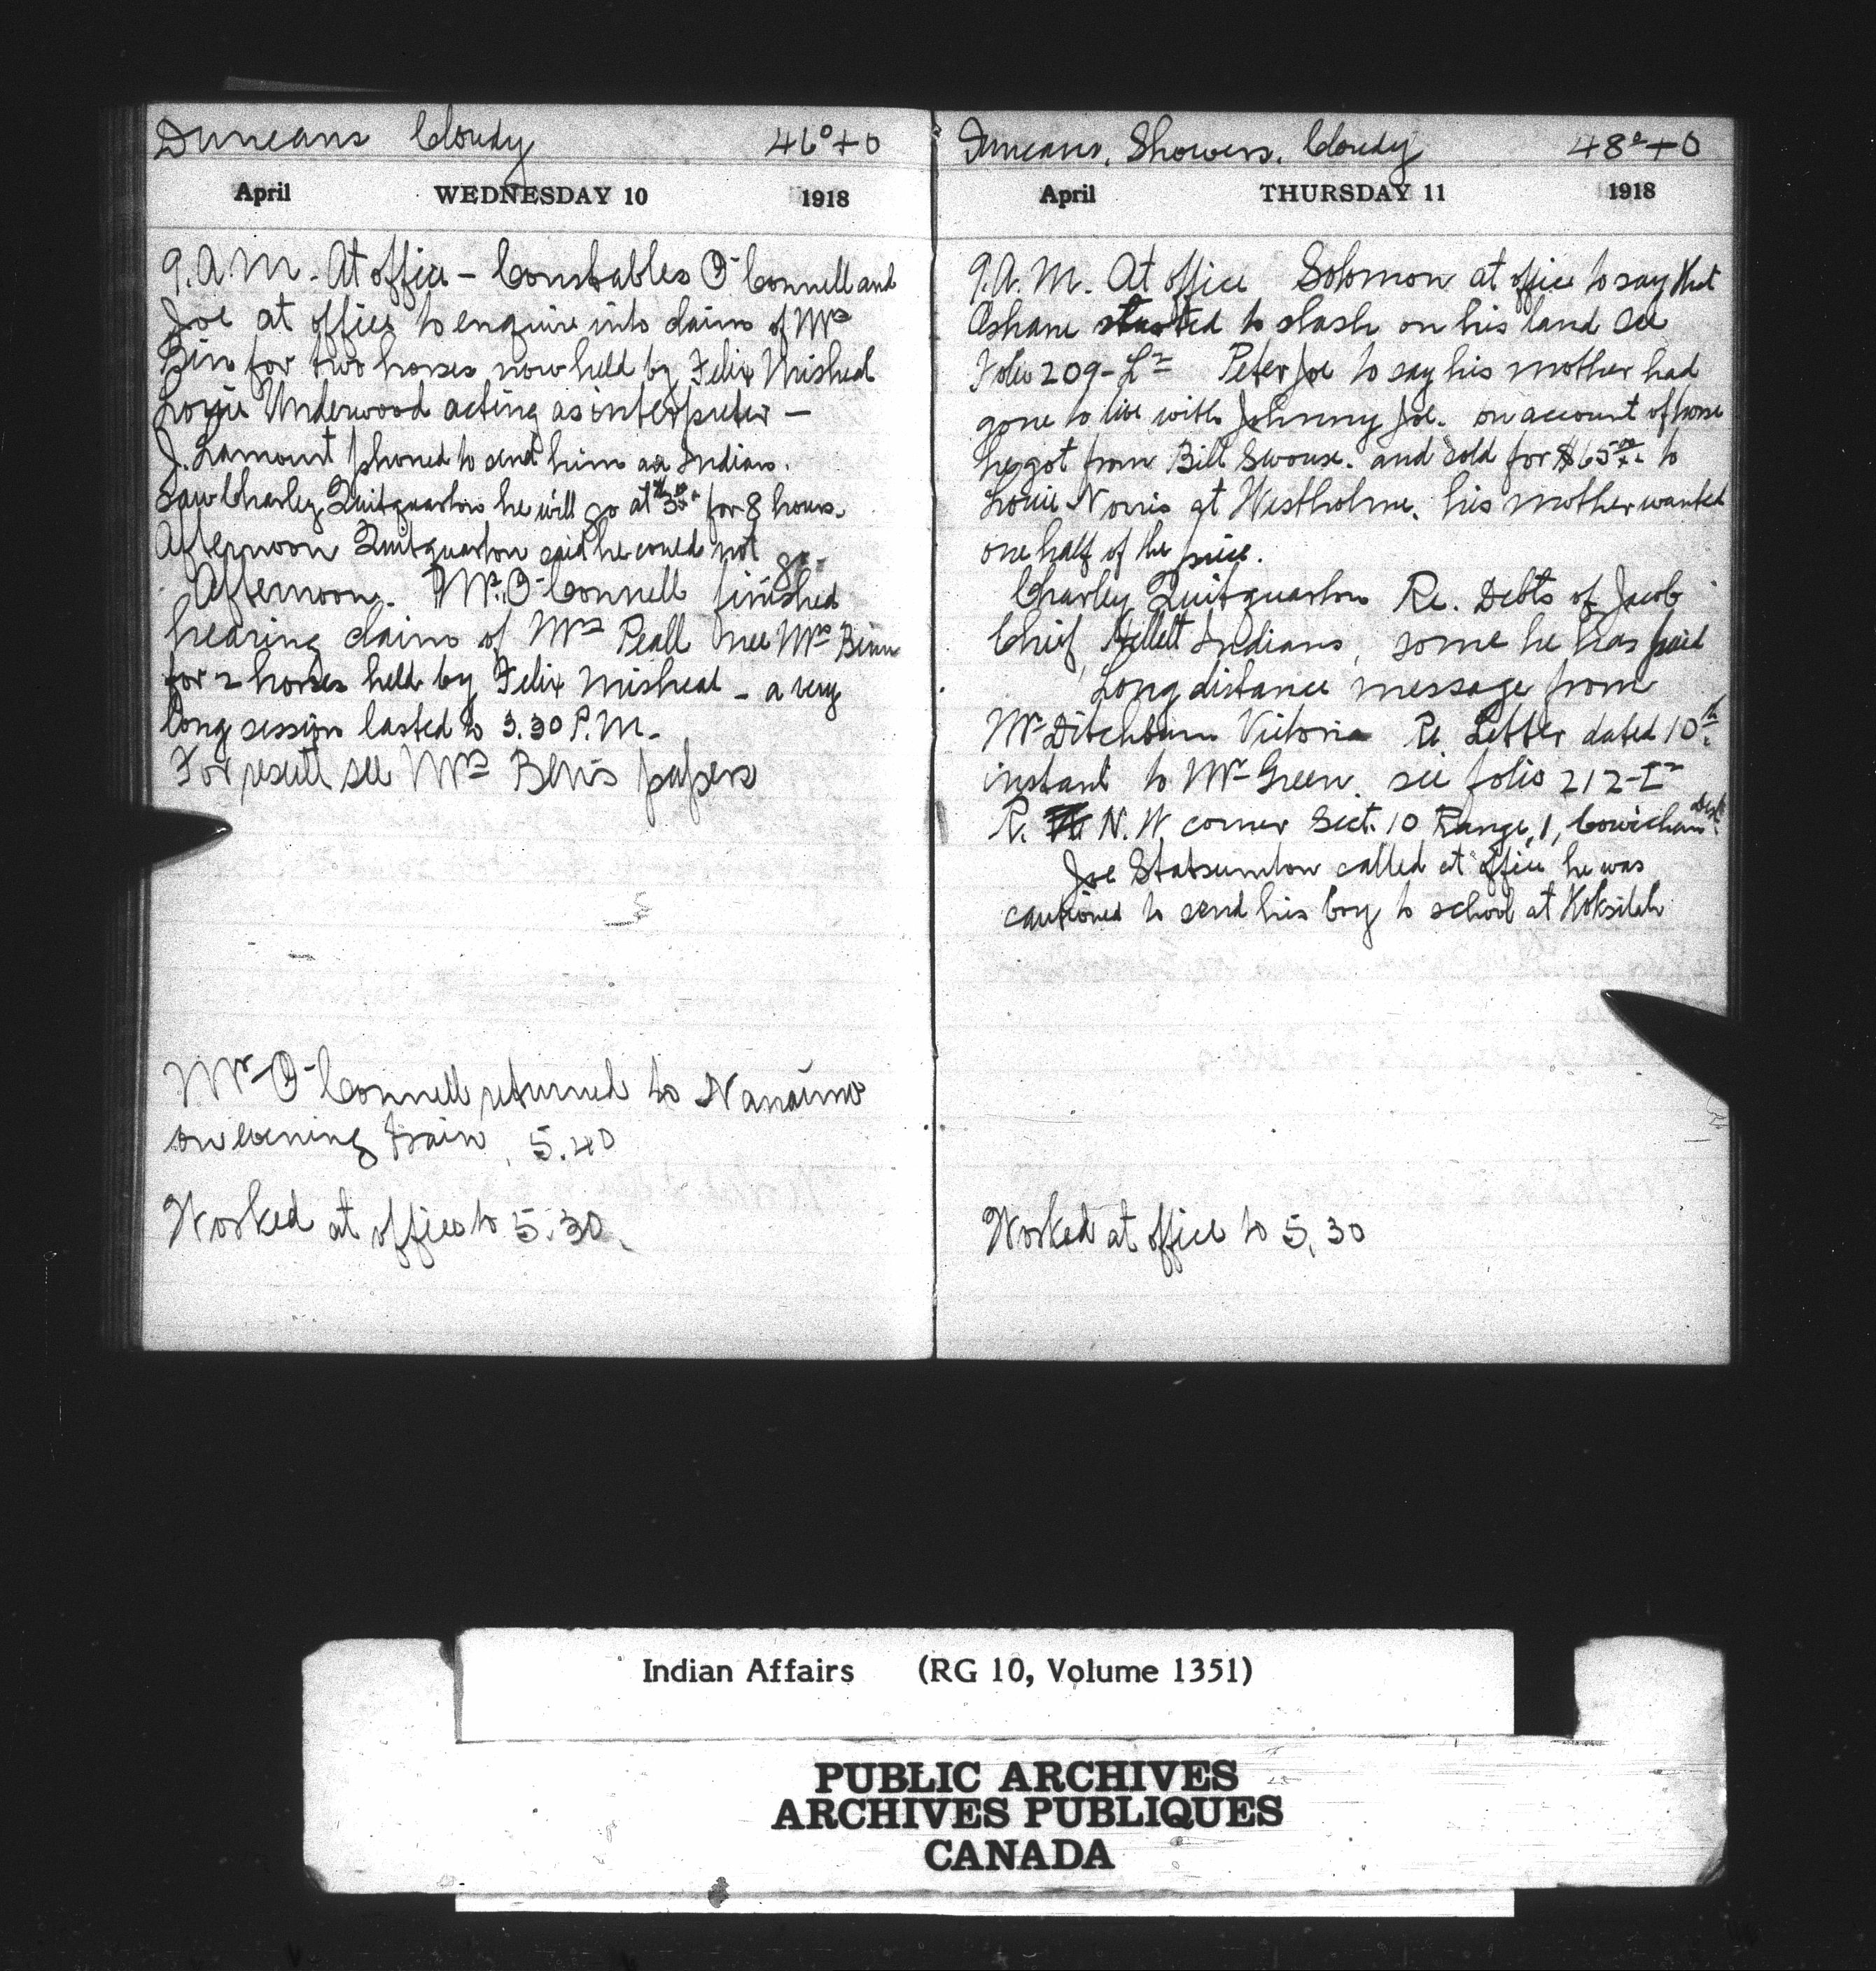 Duncans Cloudy 46°+0
April WEDNESDAY 10 1918
9.A.M. At office - Constables O'Connell and
Joe at office to enquire into claim of Mrs
Bin for two horses now held by Felix Misheal
Louie Underwood acting as interpreter -
J. Lamount phoned to send him an Indian.
Saw Charley Quitquarton he will go at $3.00 for 8 hours.
Afternoon Quitquarton said he could not go.
Afternoon. Mr. O'Connell finished
hearing claim of Mrs Peall nee Mrs Binn
for 2 horses held by Felix Misheal - a very
long session lasted to 3.30 P.M.
For result see Mrs Ben's papers
Mr O'Connell returned to Nanaimo
on evening train, 5.40
Worked at office to 5.30.
Duncans. Showers. Cloudy 48°+0
April THURSDAY 11 1918
9.A.M. At office Solomon at office to say that
started to slash on his land see
Folio 209- Peter Joe to say his mother had
gone to live with Johnny Joe. on account of horse
he got from Bill Swouse. and sold for $65.00 to
Louie Norris at Westholme. his mother wanted
one half of the price.
Charley Quitquarton Re. Debts of Jacob
Chief, Indians, some he has paid
Long distance message from
Mr Ditchburn Victoria Re Letter dated 10th
instant to Mr Green. see folio 212-
R. N.W. corner Sect. 10 Range, 1, Cowichan Dist.
Joe Statsumton called at office he was
cautioned to send his boy to school at Koksilah
Worked at office to 5,30
Indian Affairs (RG 10, Volume 1351)
PUBLIC ARCHIVES
ARCHIVES PUBLIQUES
CANADA